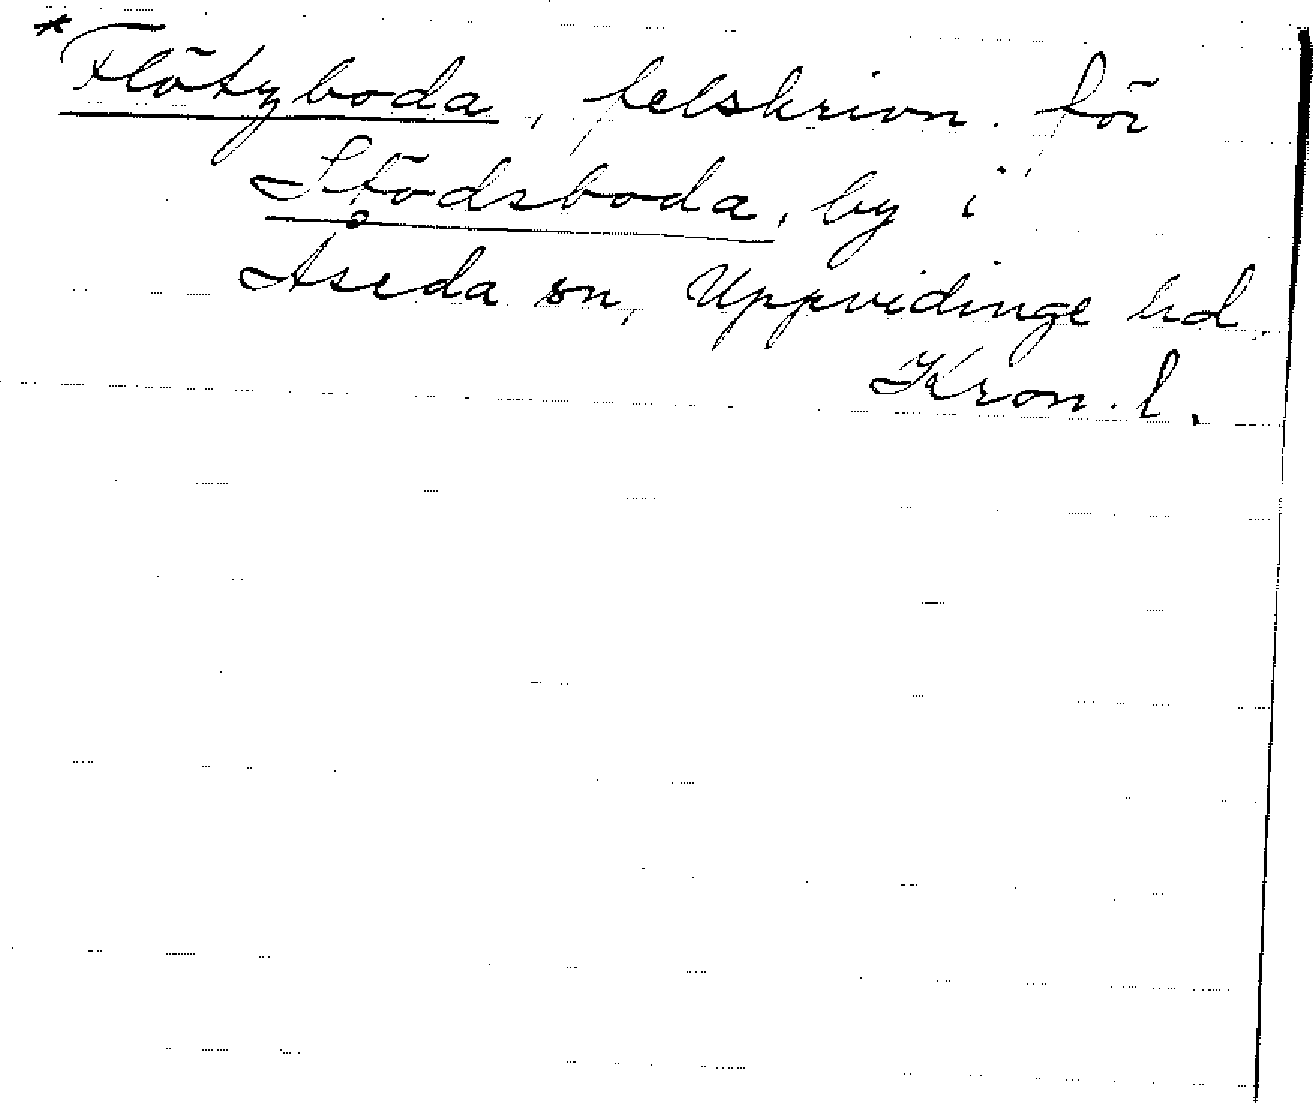 *Flötzboda, felskrivn. för
Stödsboda, by i
Åseda sn, Uppvidinge hd,
Kron. l.